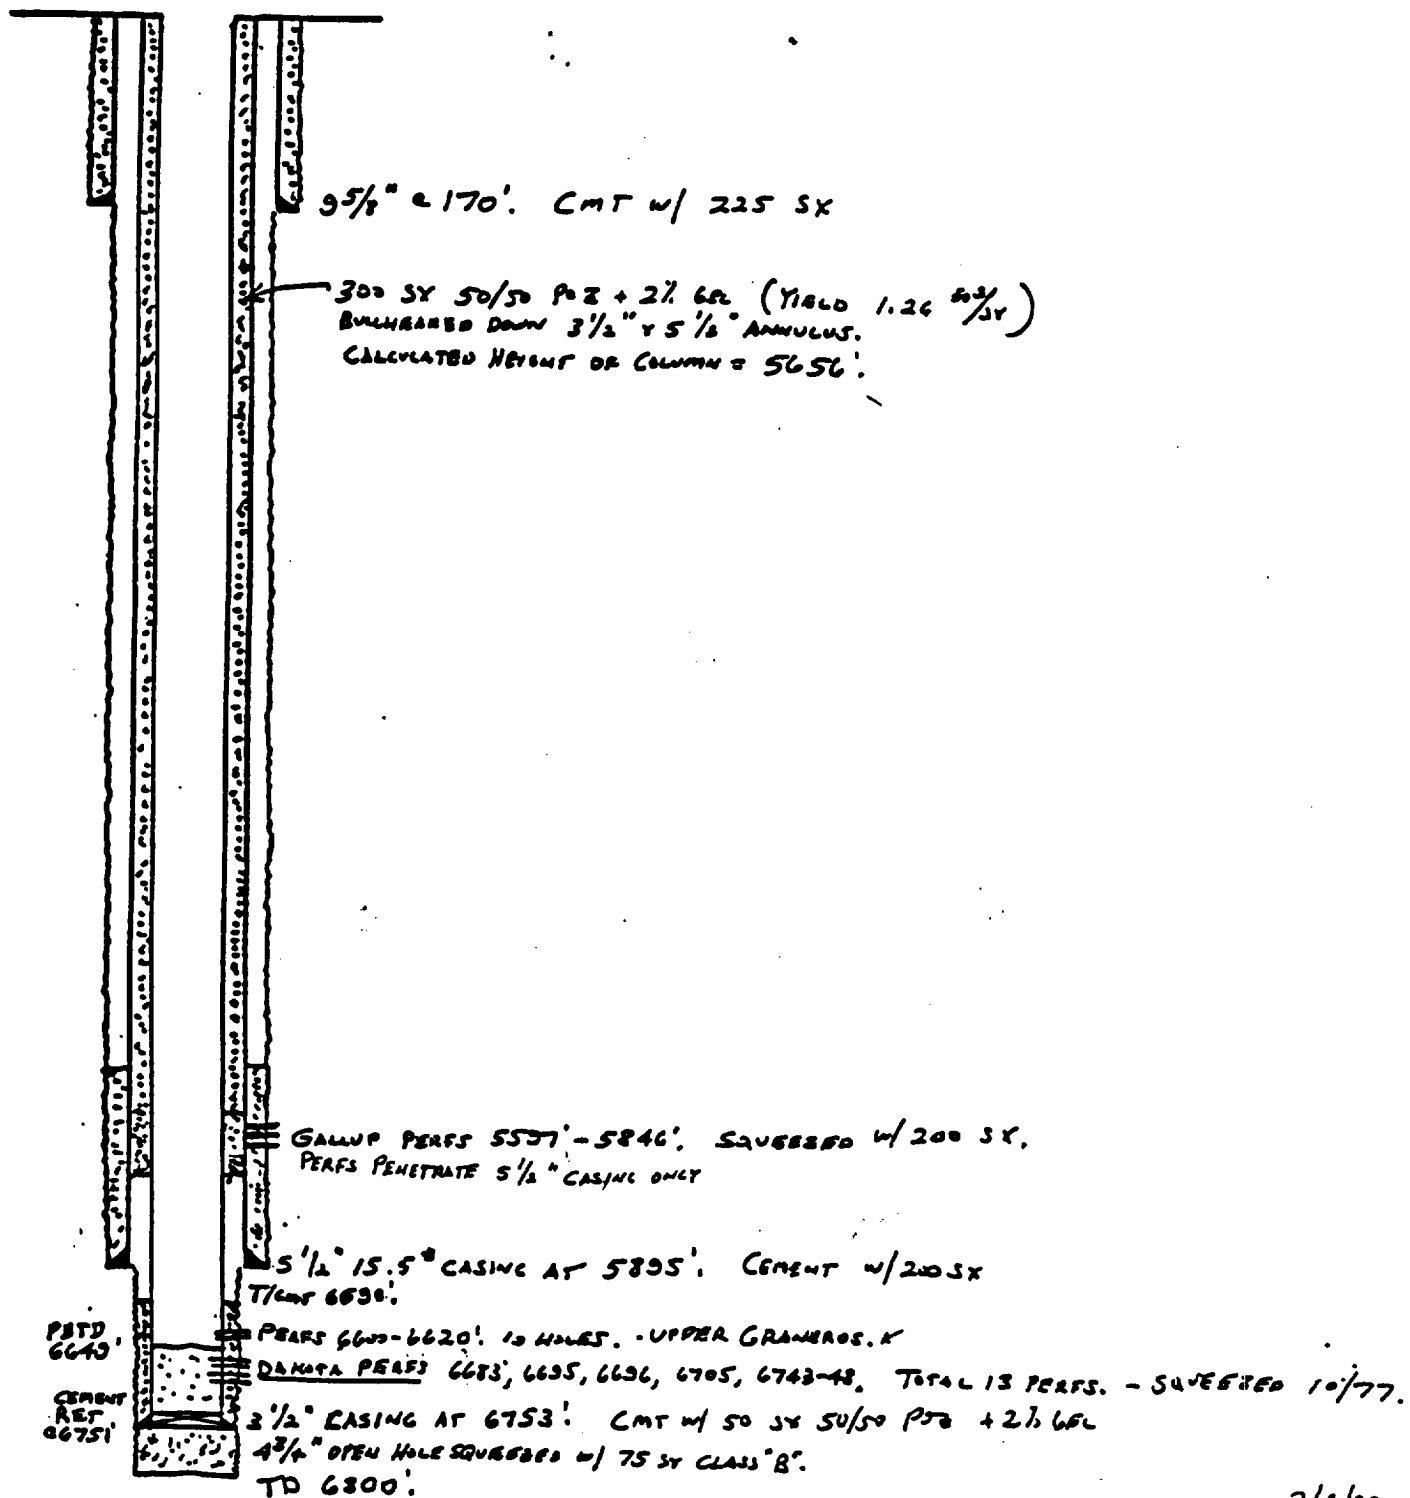 9 5/8" @ 170'. CMT w/ 225 SX
300 SX 50/50 POZ + 2% GEL (YIELD 1.26 /SX)
BULLHEADED DOWN 3 1/2" x 5 1/2" ANNULUS.
CALCULATED HEIGHT OF COLUMN = 5656'.
GALLUP PERFS 5597'-5846'. SQUEEZED w/ 200 SX.
PERFS PENETRATE 5 1/2" CASING ONLY
5 1/2" 15.5# CASING AT 5895'. CEMENT w/ 200 SX
T/CMT
PERFS 6600-6620'. 10 HOLES. - UPPER GRANEROS.
PBTD
6649'
DAKOTA PERFS 6683', 6695, 6696, 6705, 6743-48. TOTAL 13 PERFS. - SQUEEZED 10/77.
CEMENT
RET
@6751'
3 1/2" CASING AT 6753'. CMT w/ 50 SX 50/50 POZ + 2% GEL
4 3/4" OPEN HOLE SQUEEZED w/ 75 SX CLASS "B".
TD 6800'.